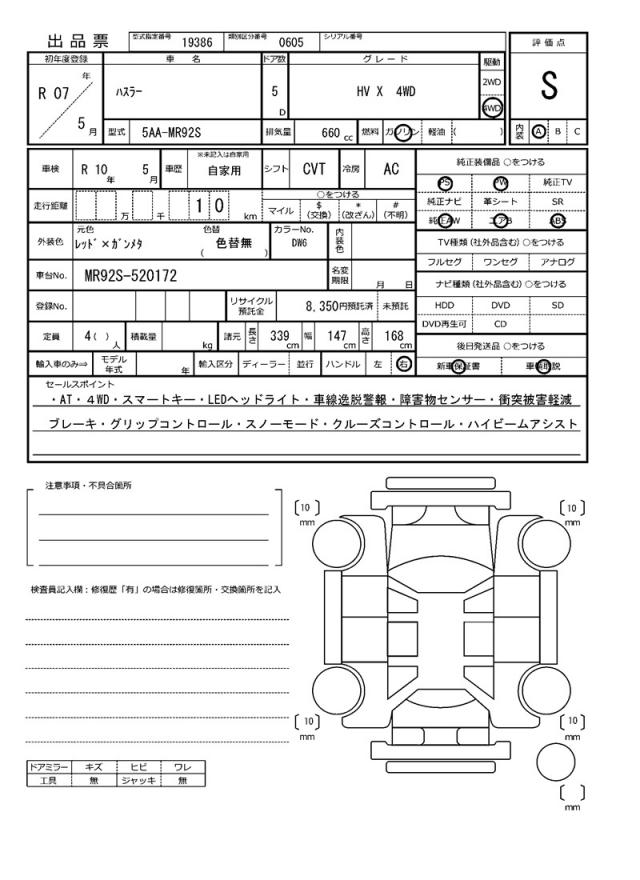 出品票 型式指定番号 19386 類別区分番号 0605 シリアル番号
評価点
S
内装 A B C
初年度登録 車名 ドア数 グレード 駆動
R 07 年 5 月 ハスラー 5 D HV X 4WD 2WD 4WD
型式 5AA-MR92S 排気量 660 cc 燃料 ガソリン 軽油 ( )
車検 R 10 年 5 月 車歴 ※未記入は自家用 自家用 シフト CVT 冷房 AC
走行距離 万 千 1 0 km ○をつける マイル $ (交換) * (改ざん) # (不明)
外装色 元色 レッド×ガンメタ 色替 ( 色替無 ) カラーNo. DWG 内装色
車台No. MR92S-520172 名変期限 月 日
登録No. リサイクル預託金 8,350円預託済 未預託
定員 4( ) 人 積載量 kg 諸元 長さ 339 cm 幅 147 cm 高さ 168 cm
輸入車のみ⇒ モデル年式 年 輸入区分 ディーラー 並行 ハンドル 左 右
純正装備品 ○をつける
PS PW 純正TV
純正ナビ 革シート SR
純正AW エアB ABS
TV種類(社外品含む)○をつける
フルセグ ワンセグ アナログ
ナビ種類(社外品含む)○をつける
HDD DVD SD
DVD再生可 CD
後日発送品 ○をつける
新車保証書 車輌取説
セールスポイント
・AT・4WD・スマートキー・LEDヘッドライト・車線逸脱警報・障害物センサー・衝突被害軽減
ブレーキ・グリップコントロール・スノーモード・クルーズコントロール・ハイビームアシスト
注意事項・不具合箇所
検査員記入欄：修復歴「有」の場合は修復箇所・交換箇所を記入
ドアミラー キズ ヒビ ワレ
工具 無 ジャッキ 無
[10] mm [10] mm
[10] mm [10] mm
[ ] mm